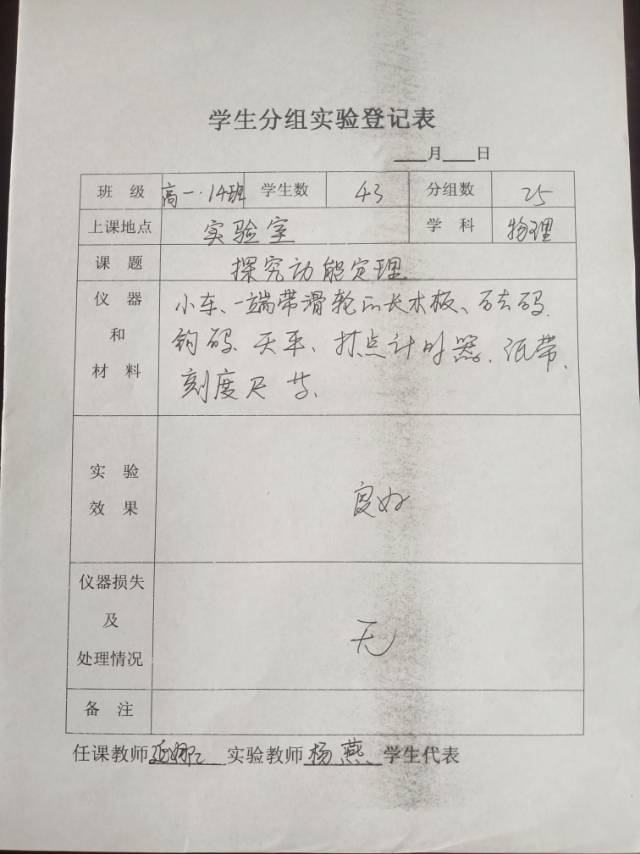 学生分组实验登记表
___月___日
班 级 高一·14班 学生数 43 分组数 25
上课地点 实验室 学 科 物理
课 题 探究动能定理
仪 器 小车、一端带滑轮的长木板、砝码、
和 钩码、天平、打点计时器、纸带、
材 料 刻度尺 等、
实 验
效 果 良好
仪器损失
及 无
处理情况
备 注
任课教师 娜 实验教师 杨燕 学生代表